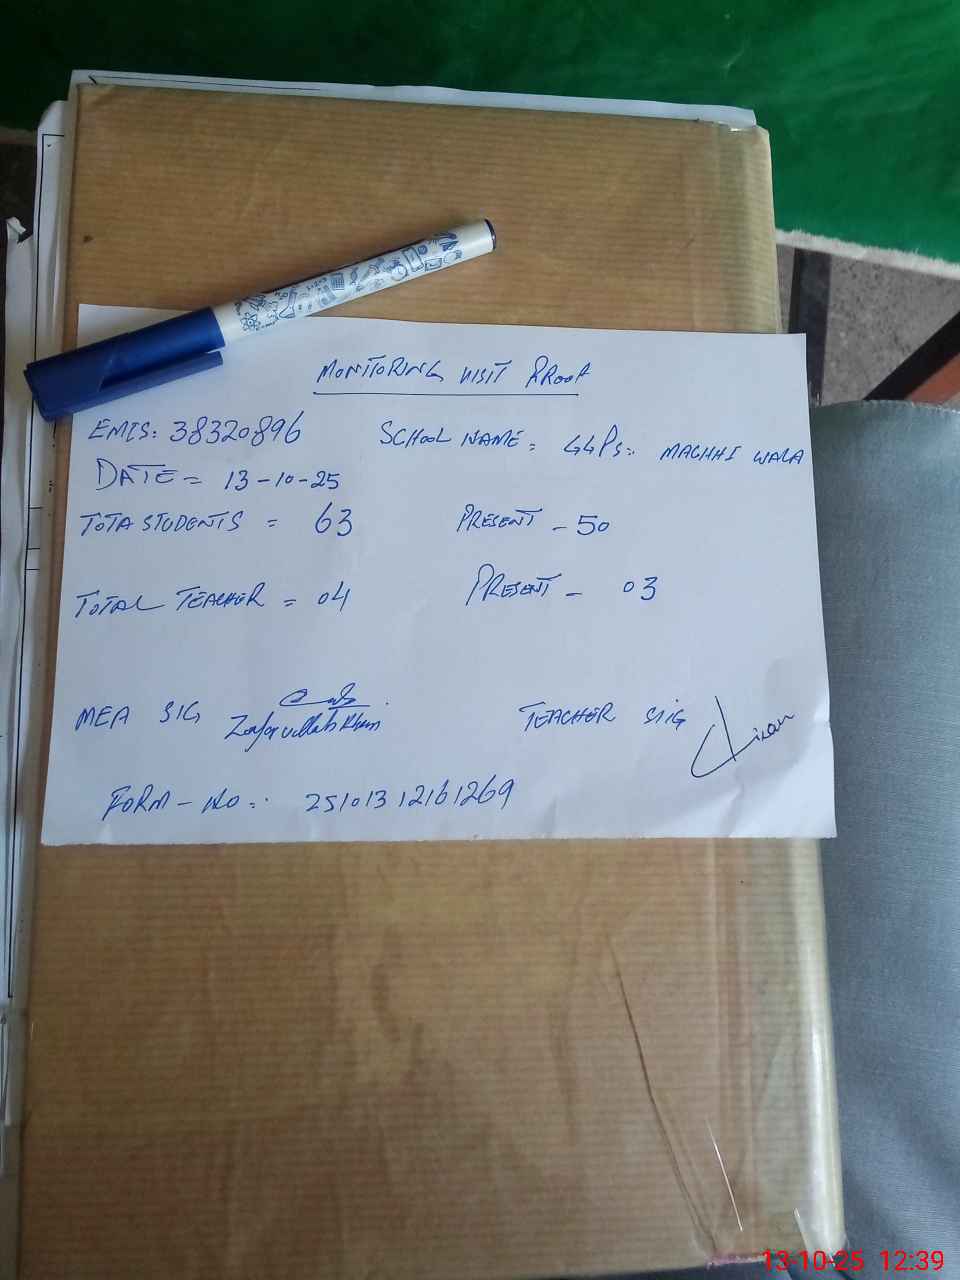 MONITORING VISIT PROOF
EMIS: 38320896 SCHOOL NAME = GGPS:. MACHHI WALA
DATE = 13-10-25
TOTA STUDENTS = 63 PRESENT - 50
TOTAL TEACHER = 04 PRESENT - 03
MEA SIG Zafarullah Khan TEACHER SIG
FORM-NO:. 25101312161269
13-10-25 12:39